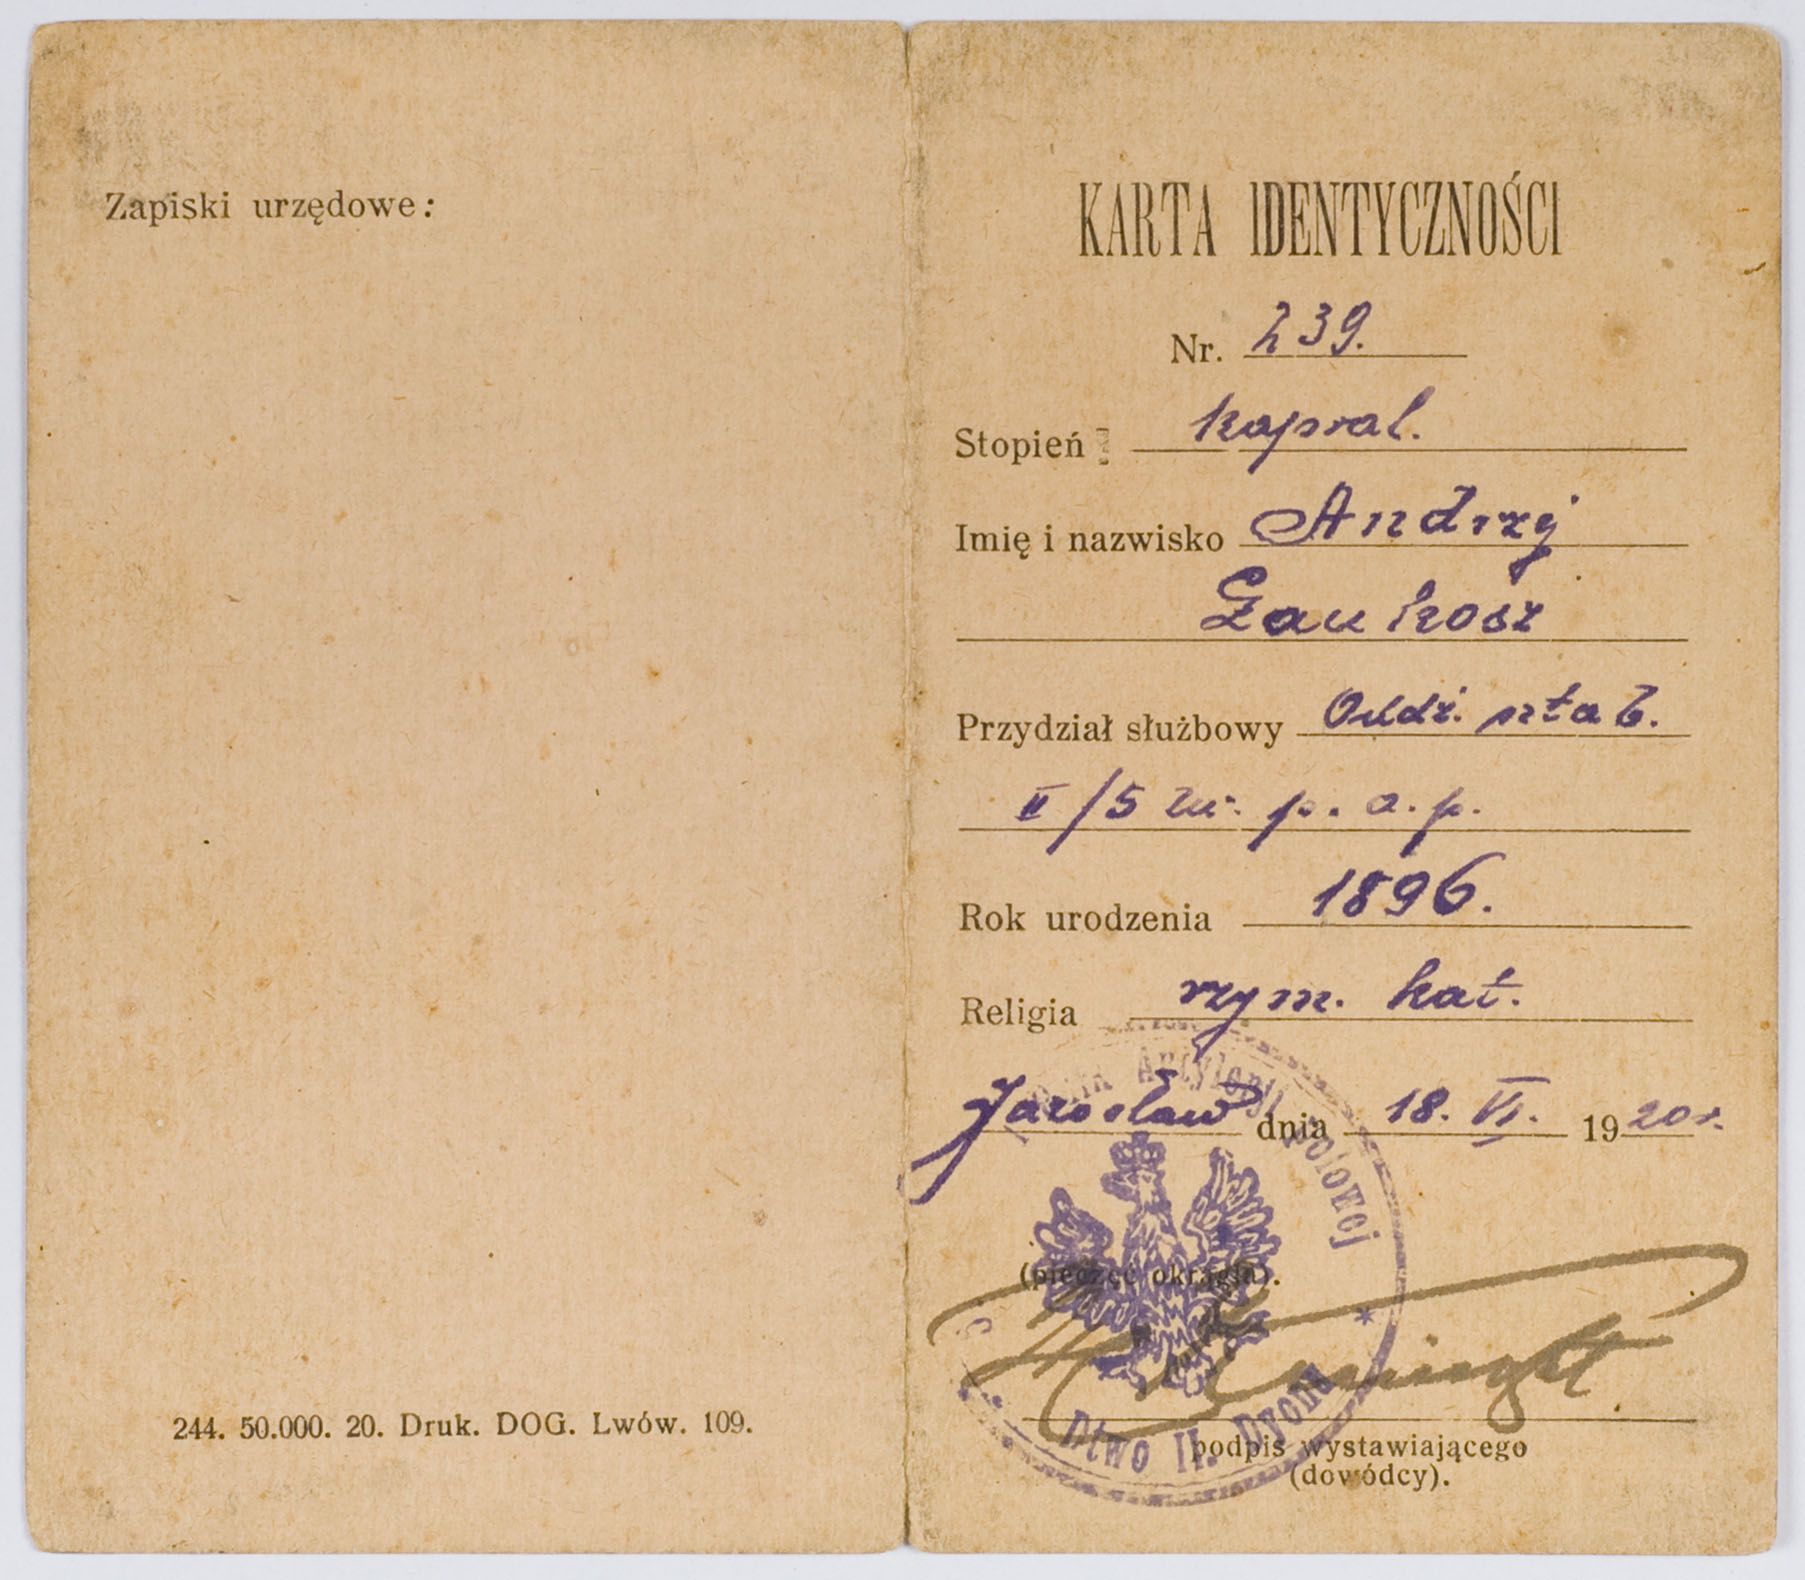 Zapiski urzędowe:
244. 50.000. 20. Druk. DOG. Lwów. 109.
KARTA IDENTYCZNOŚCI
Nr. 239.
Stopień kapral.
Imię i nazwisko Andrzej
Żaukosz
Przydział służbowy Oddz. sztab.
II/5 p. a. p.
Rok urodzenia 1896.
Religia rzym. kat.
Jarosław dnia 18. VI. 1920 r.
Artylerji polowej
(pieczęć okrągła).
Dtwo II. Dyonu
podpis wystawiającego
(dowódcy).